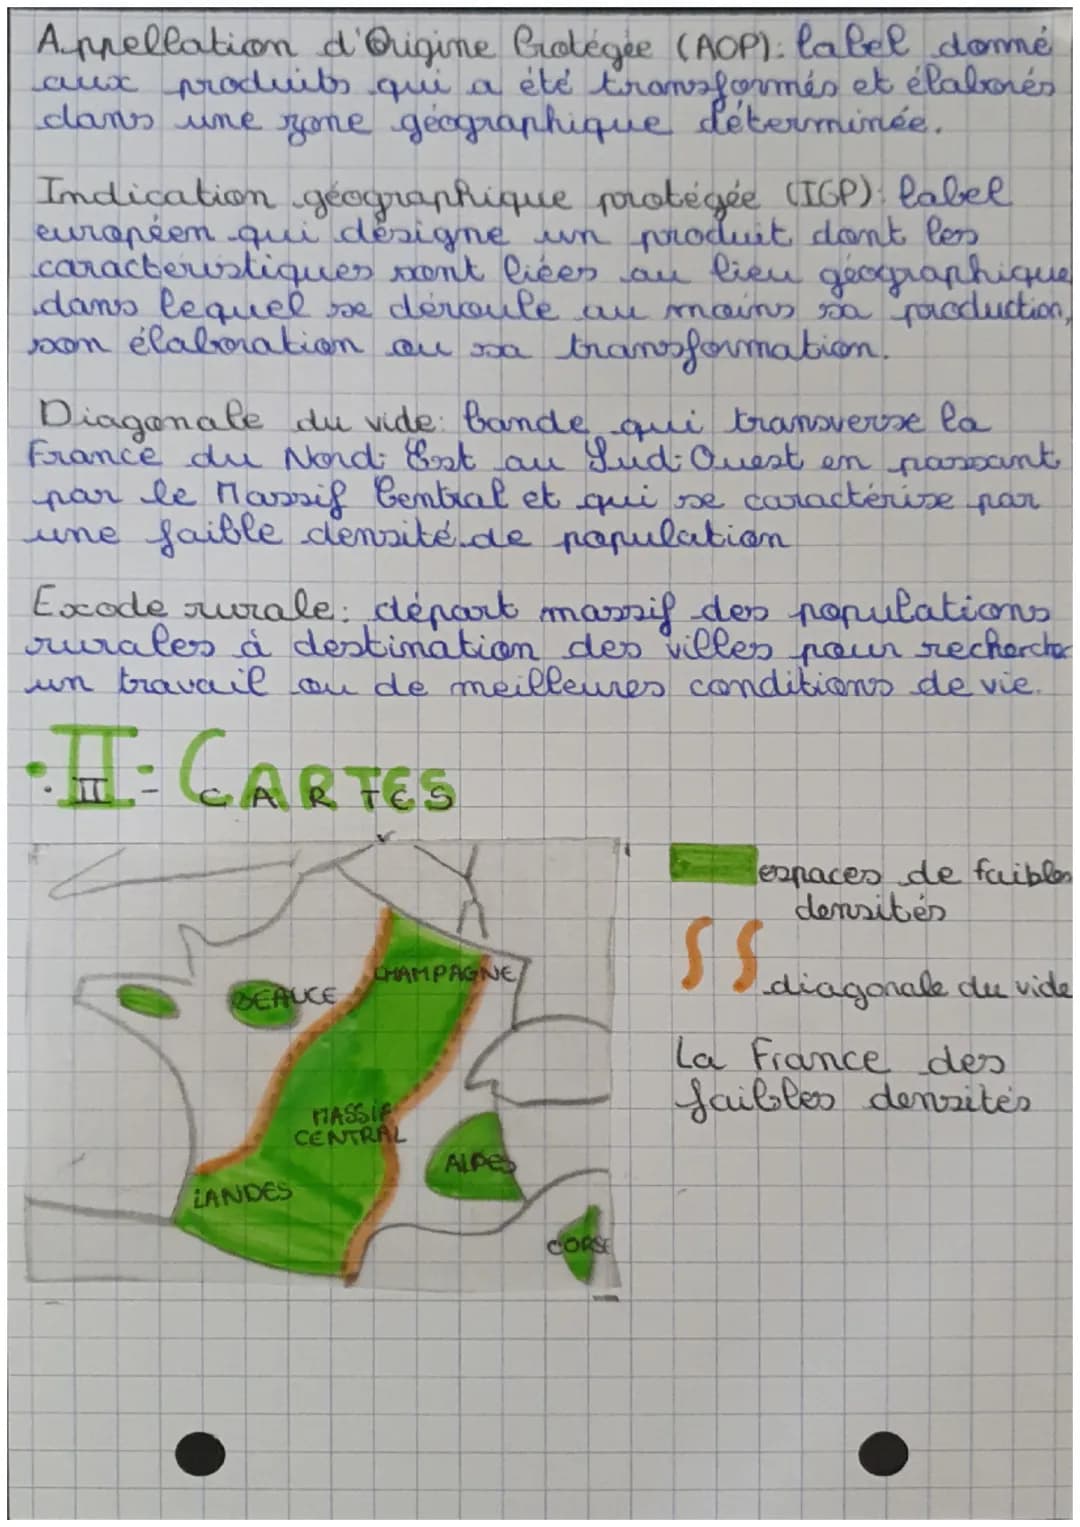 Appellation d'Origine Protégée (AOP): label donné
aux produits qui a été transformés et élaborés
dans une zone géographique déterminée.
Indication géographique protégée (IGP): label
européen qui désigne un produit dont les
caractéristiques sont liées au lieu géographique
dans lequel se déroule au moins sa production,
son élaboration ou sa transformation.
Diagonale du vide: bande qui transverse la
France du Nord-Est au Sud-Ouest en passant
par le Massif Central et qui se caractérise par
une faible densité de population
Exode rurale: départ massif des populations
rurales à destination des villes pour rechercher
un travail ou de meilleures conditions de vie.
• II - CARTES
espaces de faibles
densités
diagonale du vide
La France des
faibles densités
CHAMPAGNE
BEAUCE
MASSIF
CENTRAL
ALPES
LANDES
CORSE